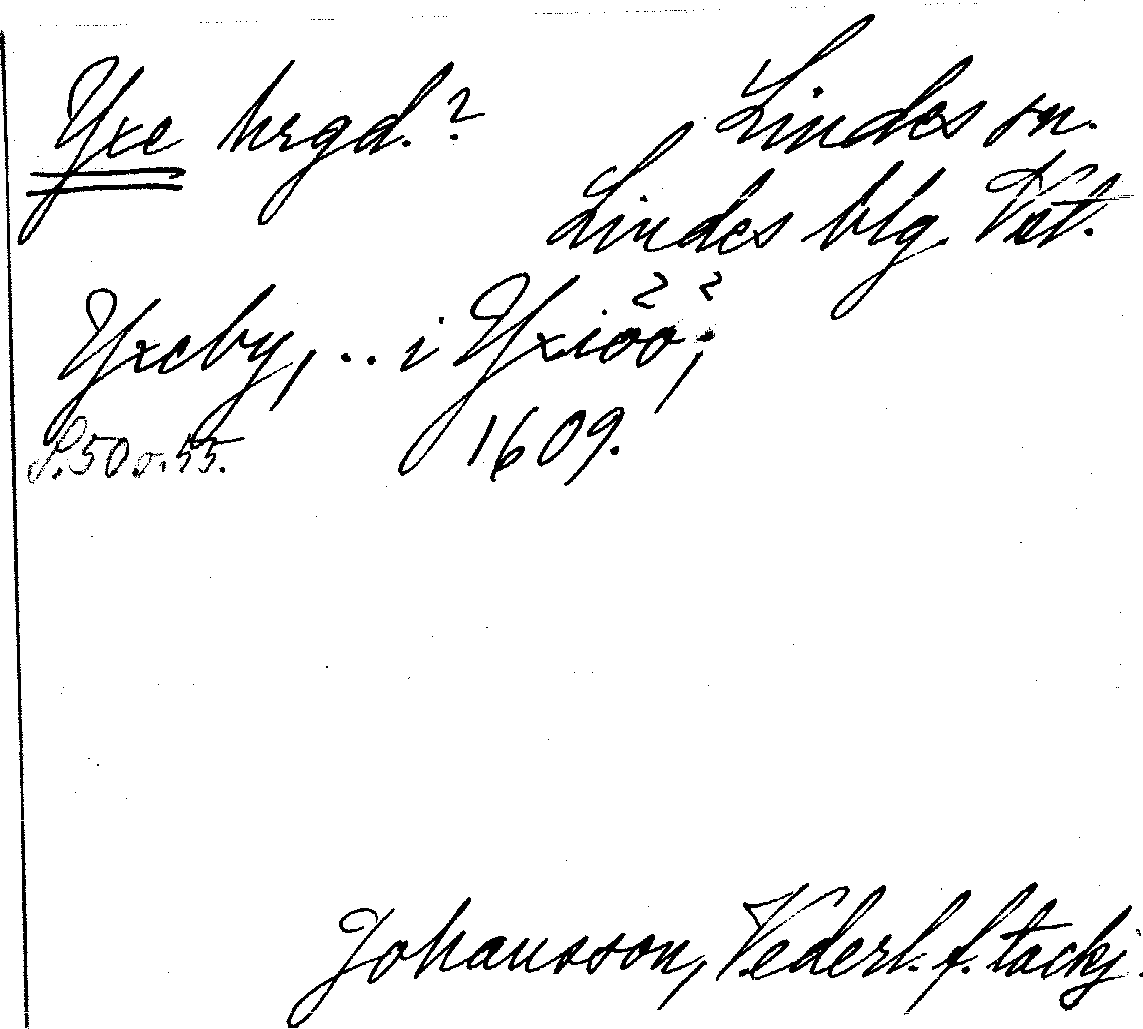 Yxe hrgd.? Lindes sn.
Lindes blg. Vstm.
Yxeby, .. i Yxiöö;
S. 50 o. 55. 1609.
Johansson, Vederl. f. tackj.